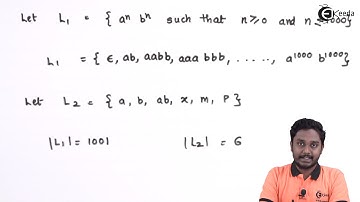 Let L₁ = { aⁿ bⁿ such that n≥0 and n≤1000}
L₁ = { ϵ, ab, aabb, aaa bbb, ....., a¹⁰⁰⁰ b¹⁰⁰⁰}
Let L₂ = { a, b, ab, x, m, P }
|L₁| = 1001 |L₂| = 6